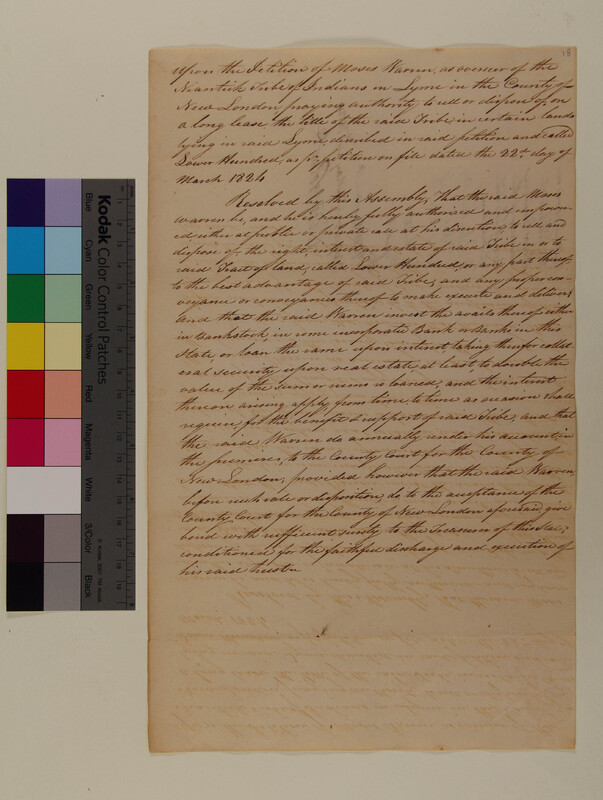 18
upon the Petition of Moses Warren, as overseer of the
Niantick Tribe of Indians in Lyme in the County of
New London praying authority to sell or dispose of, on
a long lease the title of the said Tribe in certain lands
lying in said Lyme described in said petition and called
Lower Hundred, as pr petition on file dated the 22d day of
March 1824
Resolved by this Assembly, That the said Moses
Warren be, and he is hereby fully authorised and empower-
ed, either at public or private sale at his discretion, to sell and
dispose of the right, interest and estate of said Tribe in or to
said Tract of land, called Lower Hundred, or any part thereof
to the best advantage of said Tribe, and any proper con-
veyance or conveyances thereof to make execute and deliver,
and that the said Warren invest the avails thereof either
in Bankstock, in some incorporate Bank or Banks in this
State, or loan the same upon interest, taking therefor collat
eral security upon real estate, at least, to double the
value of the sum or sums so loaned, and the interest
thereon arising apply, from time to time as occasion shall
require, for the benefit & support of said Tribe, and that
the said Warren do annually render his account in
the premises, to the County Court for the County of
New London; provided however that the said Warren
before such sale or disposition, do to the acceptance of the
County Court for the County of New London aforesaid, give
bond with sufficient surety to the Treasurer of this State;
conditioned for the faithful discharge and execution of
his said trust
Kodak Color Control Patches
Blue
Cyan
Green
Yellow
Red
Magenta
White
3/Color
Black